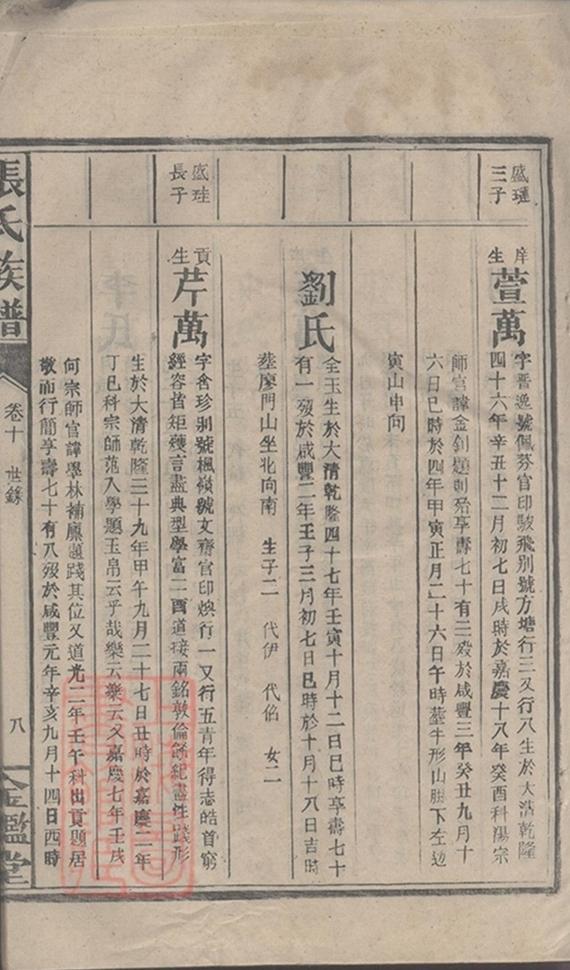 盛璉
三子
庠
生
萱萬
字晋逸號佩芬官印駿飛別號方塘行三又行八生於大清乾隆
四十六年辛丑十二月初七日戌時於嘉慶十八年癸酉科湯宗
師官諱金釗題刺殆享壽七十有三歿於咸豐三年癸丑九月十
六日巳時於四年甲寅正月二十六日午時塟牛形山胭下左边
寅山申向
劉氏
全玉生於大清乾隆四十七年壬寅十月十二日巳時享壽七十
有一歿於咸豐二年壬子三月初七日巳時於十月十八日吉時
塟廖門山坐北向南 生子二 代伊 代佑 女二
盛珪
長子
貢
生
芹萬
字含珍別號楓嶺號文齋官印煥行一又行五青年得志皓首窮
經容皆矩矱言盡典型學富二酉道接兩銘敦倫飭紀盡性踐形
生於大清乾隆三十九年甲午九月二十七日丑時於嘉慶二年
丁巳科宗師范入學題玉帛云乎哉樂云樂云又嘉慶七年壬戌
何宗師官諱學林補廪題踐其位又道光二年壬午科出貢題居
敬而行簡享壽七十有八歿於咸豐元年辛亥九月十四日酉時
張氏族譜
卷十 世錄
八
金鑑堂